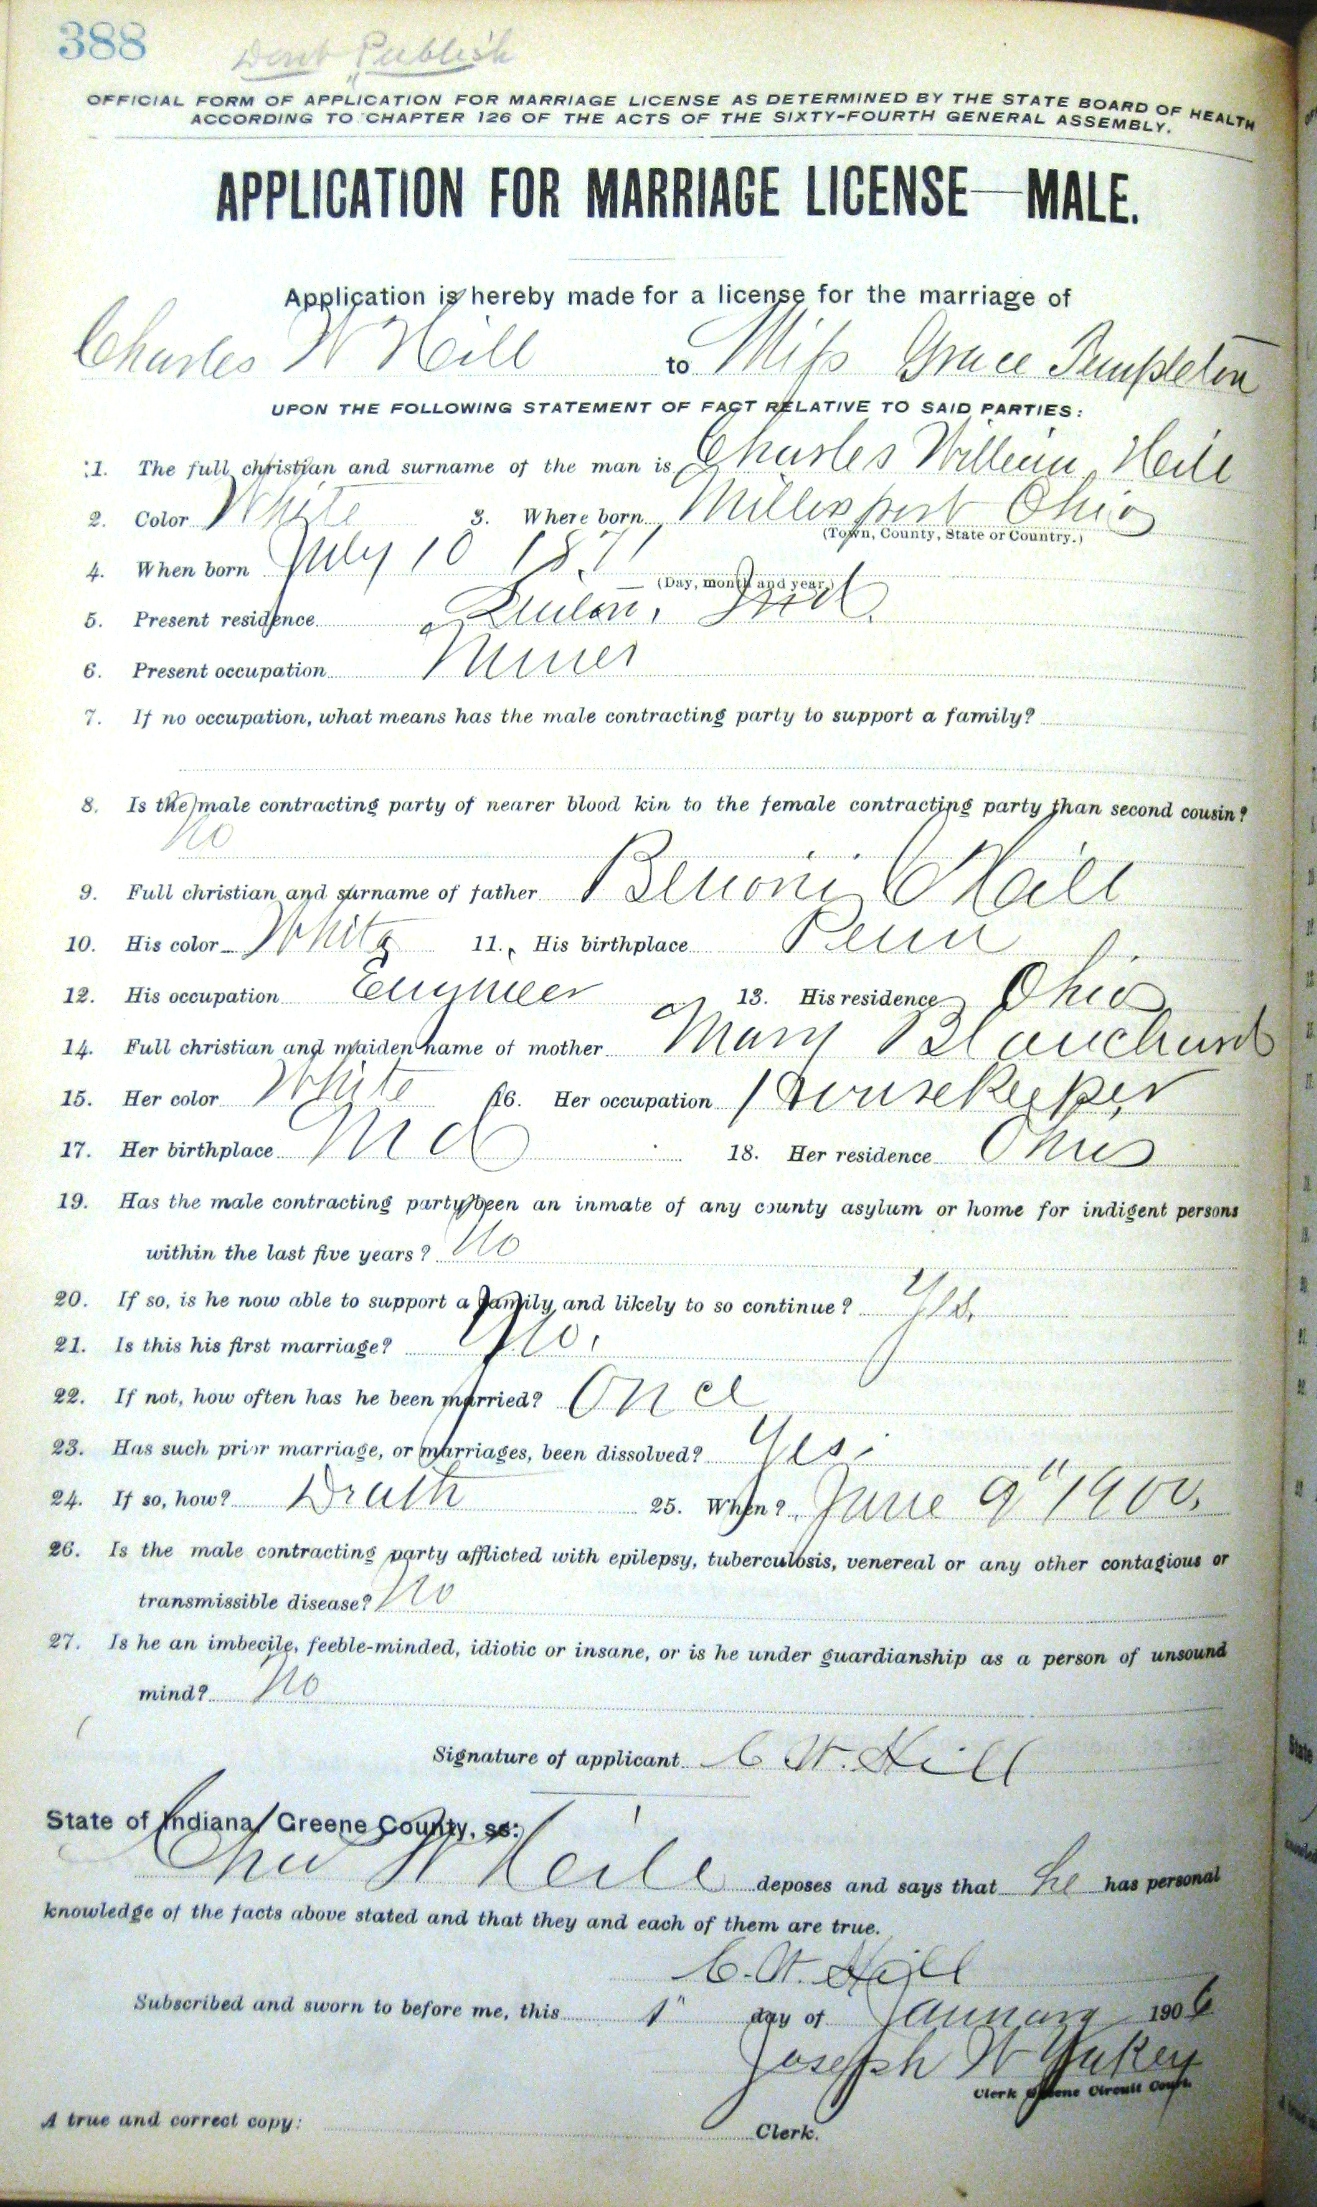 388
Dont Publish
OFFICIAL FORM OF APPLICATION FOR MARRIAGE LICENSE AS DETERMINED BY THE STATE BOARD OF HEALTH
ACCORDING TO CHAPTER 126 OF THE ACTS OF THE SIXTY-FOURTH GENERAL ASSEMBLY.
APPLICATION FOR MARRIAGE LICENSE—MALE.
Application is hereby made for a license for the marriage of
Charles W Hill to Miss Grace Templeton
UPON THE FOLLOWING STATEMENT OF FACT RELATIVE TO SAID PARTIES:
1. The full christian and surname of the man is Charles William Hill
2. Color White 3. Where born Millersport Ohio
(Town, County, State or Country.)
4. When born July 10 1871
(Day, month and year.)
5. Present residence Linton, Ind.
6. Present occupation Miner
7. If no occupation, what means has the male contracting party to support a family?
8. Is the male contracting party of nearer blood kin to the female contracting party than second cousin?
No
9. Full christian and surname of father Benoni Hill
10. His color White 11. His birthplace Penn
12. His occupation Engineer 13. His residence Ohio
14. Full christian and maiden name of mother Mary Blanchard
15. Her color White 16. Her occupation Housekeeper
17. Her birthplace Md 18. Her residence Ohio
19. Has the male contracting party been an inmate of any county asylum or home for indigent persons
within the last five years? No
20. If so, is he now able to support a family and likely to so continue? Yes.
21. Is this his first marriage? No.
22. If not, how often has he been married? Once
23. Has such prior marriage, or marriages, been dissolved? Yes.
24. If so, how? Death 25. When? June 9" 1900.
26. Is the male contracting party afflicted with epilepsy, tuberculosis, venereal or any other contagious or
transmissible disease? No
27. Is he an imbecile, feeble-minded, idiotic or insane, or is he under guardianship as a person of unsound
mind? No
Signature of applicant C. W. Hill
State of Indiana, Greene County, ss:
Chas W Hill deposes and says that he has personal
knowledge of the facts above stated and that they and each of them are true.
C. W. Hill
Subscribed and sworn to before me, this 1" day of January 1906
Joseph W Yakey
Clerk Greene Circuit Court.
A true and correct copy: Clerk.